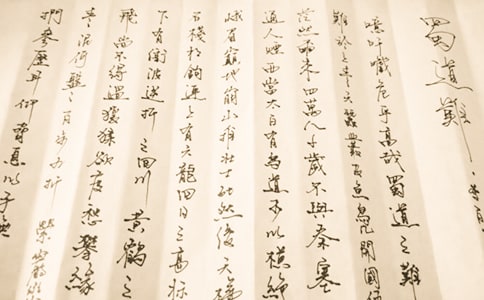 蜀道難 李白
噫吁嚱危乎高哉蜀道之難
難於上青天蠶叢及魚鳧開國
茫然爾來四萬八千歲不與秦塞
通人煙西當太白有鳥道可以橫絕
峨眉巔地崩山摧壯士死然後天梯
石棧相鉤連上有六龍回日之高標
下有衝波逆折之回川黃鶴之
飛尚不得過猿猱欲度愁攀緣
青泥何盤々百步九折縈巖巒
捫參歷井仰脅息以手